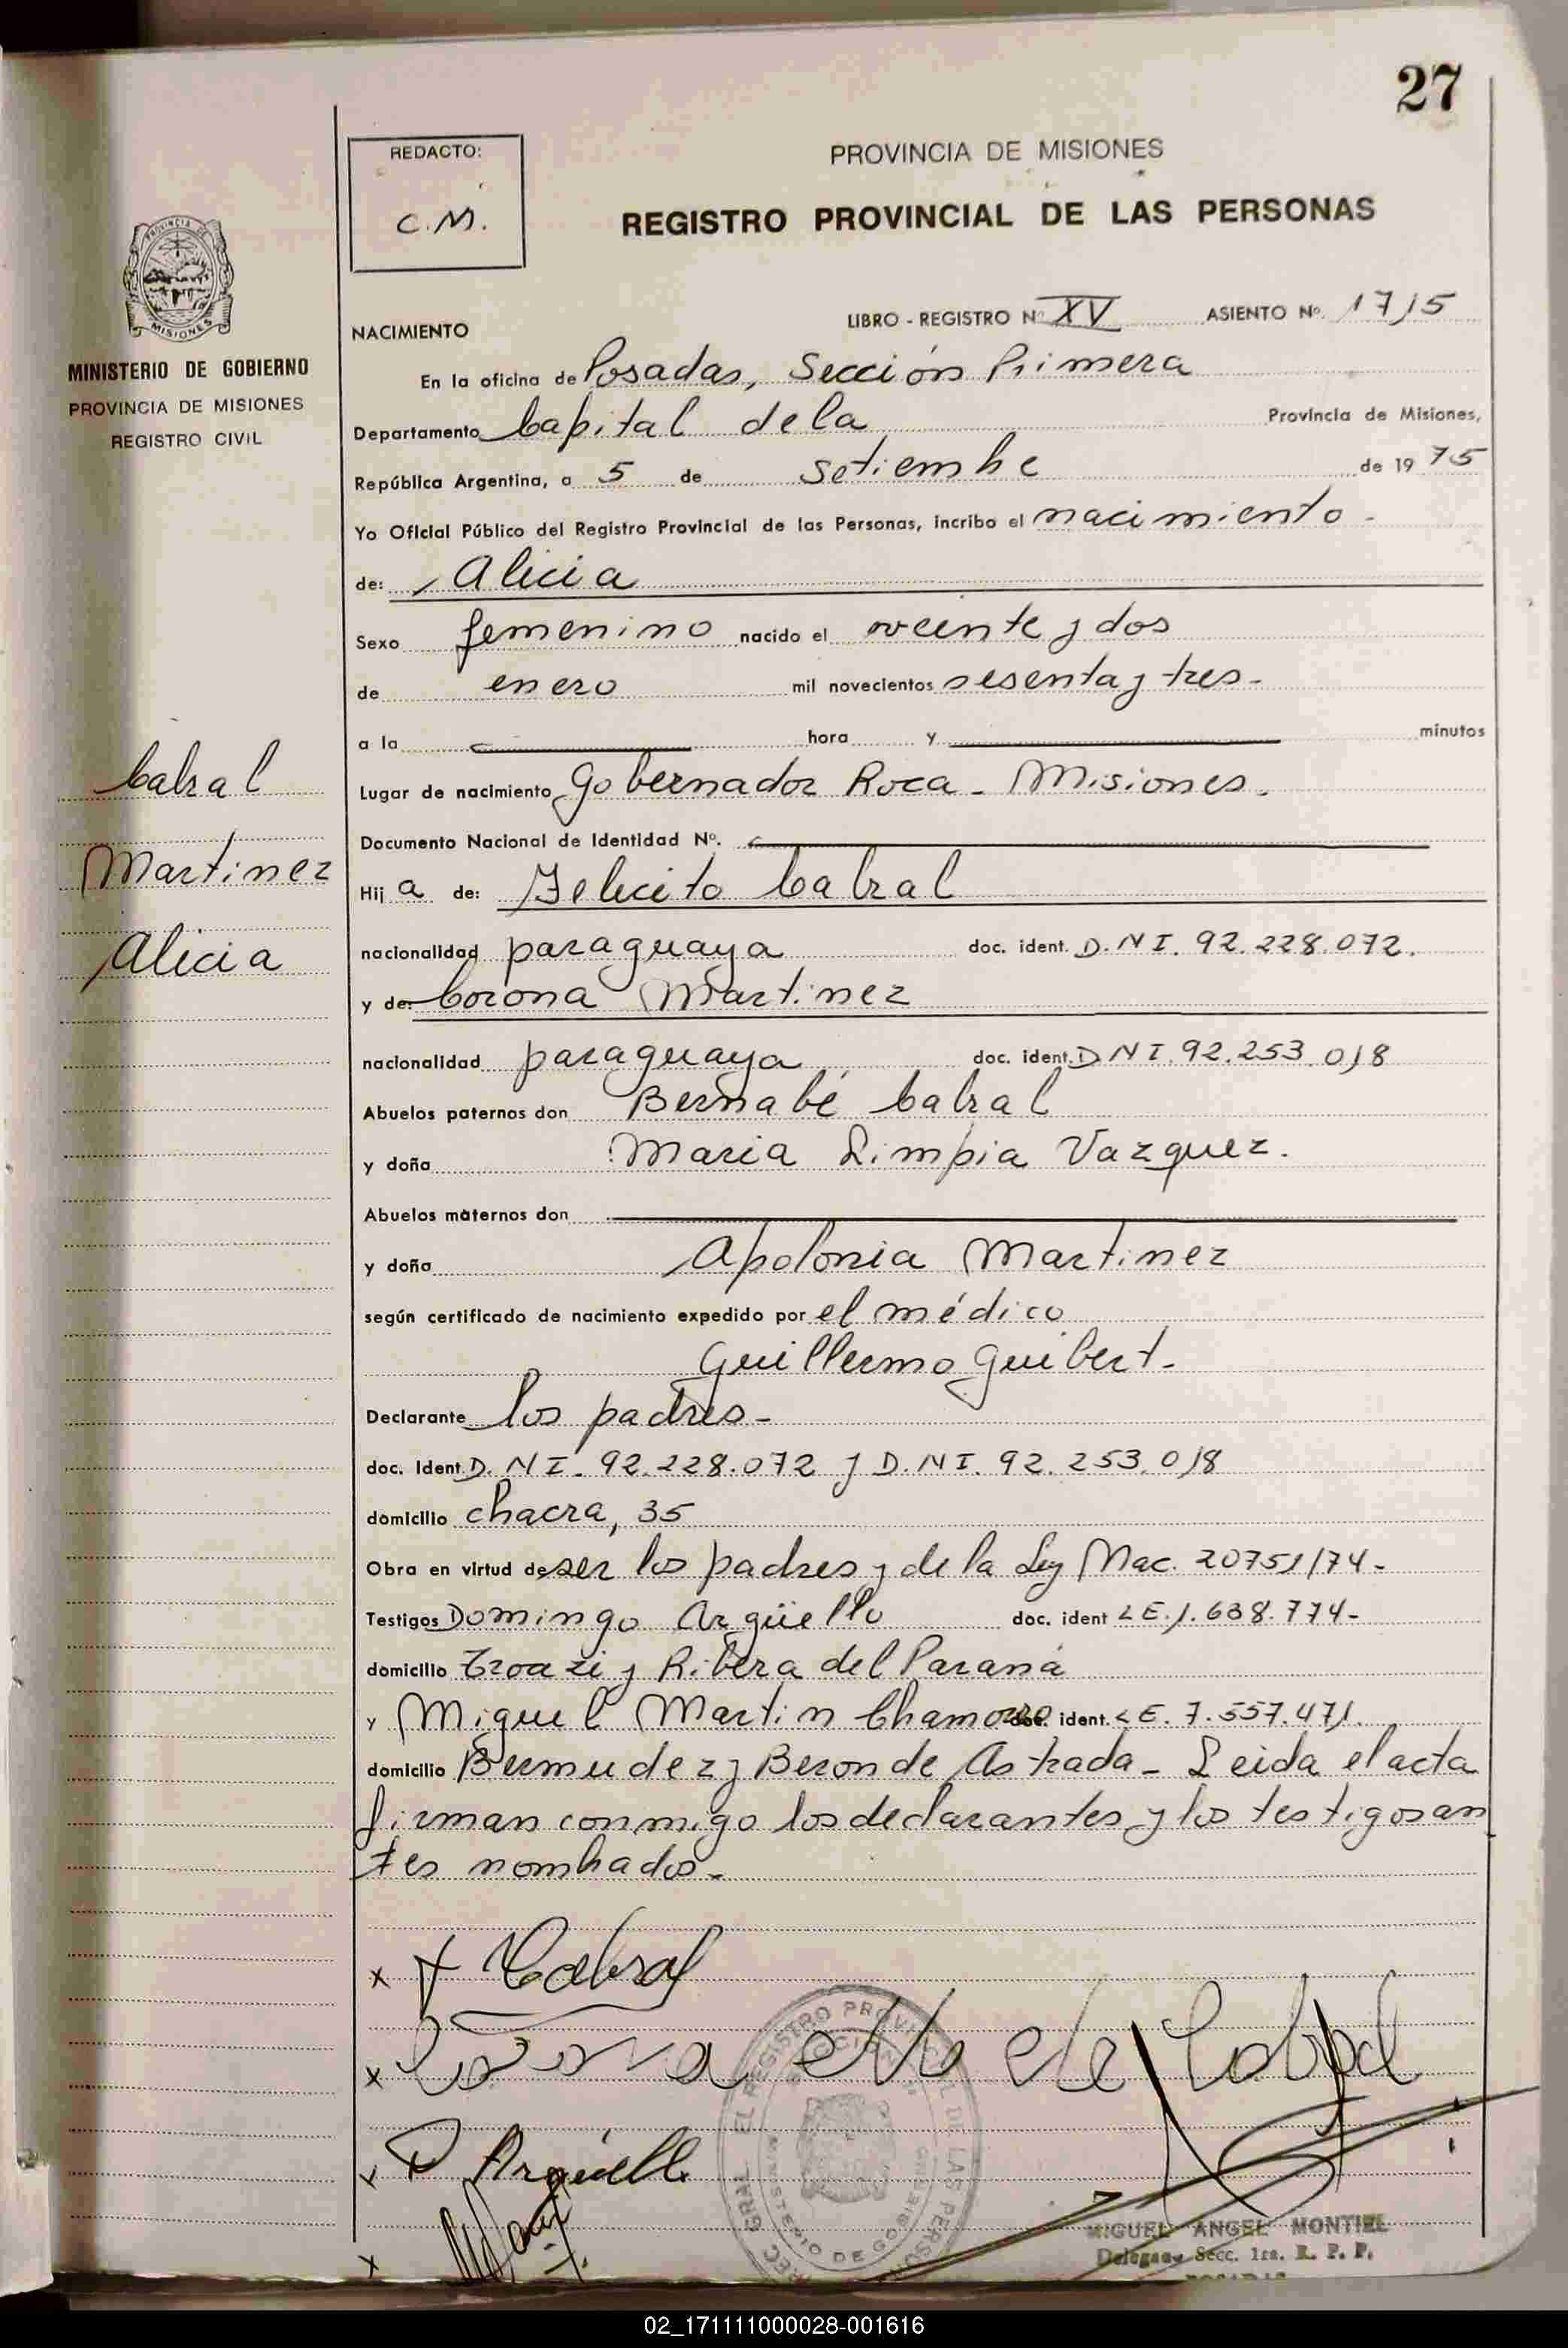 27
REDACTO:
C.M.
PROVINCIA DE MISIONES
REGISTRO PROVINCIAL DE LAS PERSONAS
PROVINCIA DE MISIONES
MINISTERIO DE GOBIERNO
PROVINCIA DE MISIONES
REGISTRO CIVIL
LIBRO - REGISTRO Nº XV ASIENTO Nº. 1715
NACIMIENTO
En la oficina de Posadas, Sección Primera
Departamento Capital de la Provincia de Misiones,
República Argentina, a 5 de setiembre de 19 75
Yo Oficial Público del Registro Provincial de las Personas, incribo el nacimiento -
de: Alicia
Sexo femenino nacido el veinte y dos
de enero mil novecientos sesenta y tres -
a la hora y minutos
Lugar de nacimiento Gobernador Roca - Misiones.
Documento Nacional de Identidad Nº.
Cabral
Martinez
Alicia
Hij a de: Felicito Cabral
nacionalidad paraguaya doc. ident. D.N I. 92.228.072.
y de: Corona Martinez
nacionalidad paraguaya doc. ident. D N I. 92.253.018
Abuelos paternos don Bernabé Cabral
y doña Maria Limpia Vazquez.
Abuelos maternos don
y doña Apolonia Martinez
según certificado de nacimiento expedido por el médico
Guillermo Guibert -
Declarante los padres -
doc. Ident. D. N I. 92.228.072 y D.N I. 92.253.018
domicilio chacra, 35
Obra en virtud de ser los padres y de la Ley Nac. 20751/74 -
Testigos Domingo Argüello doc. ident L E. 1.638.774 -
domicilio y Ribera del Paraná
y Miguel Martin Chamorro doc. ident. L E. 7.557.471.
domicilio Bermudez y Beron de Astrada - Leida el acta
firman conmigo los declarantes y los testigos an
tes nombrados -
x Cabral
x Corona de Cabral
x D Argüello
x
MIGUEL ANGEL MONTIEL
Delegado Secc. 1ra. R. P. P.
POSADAS
02_171111000028-001616